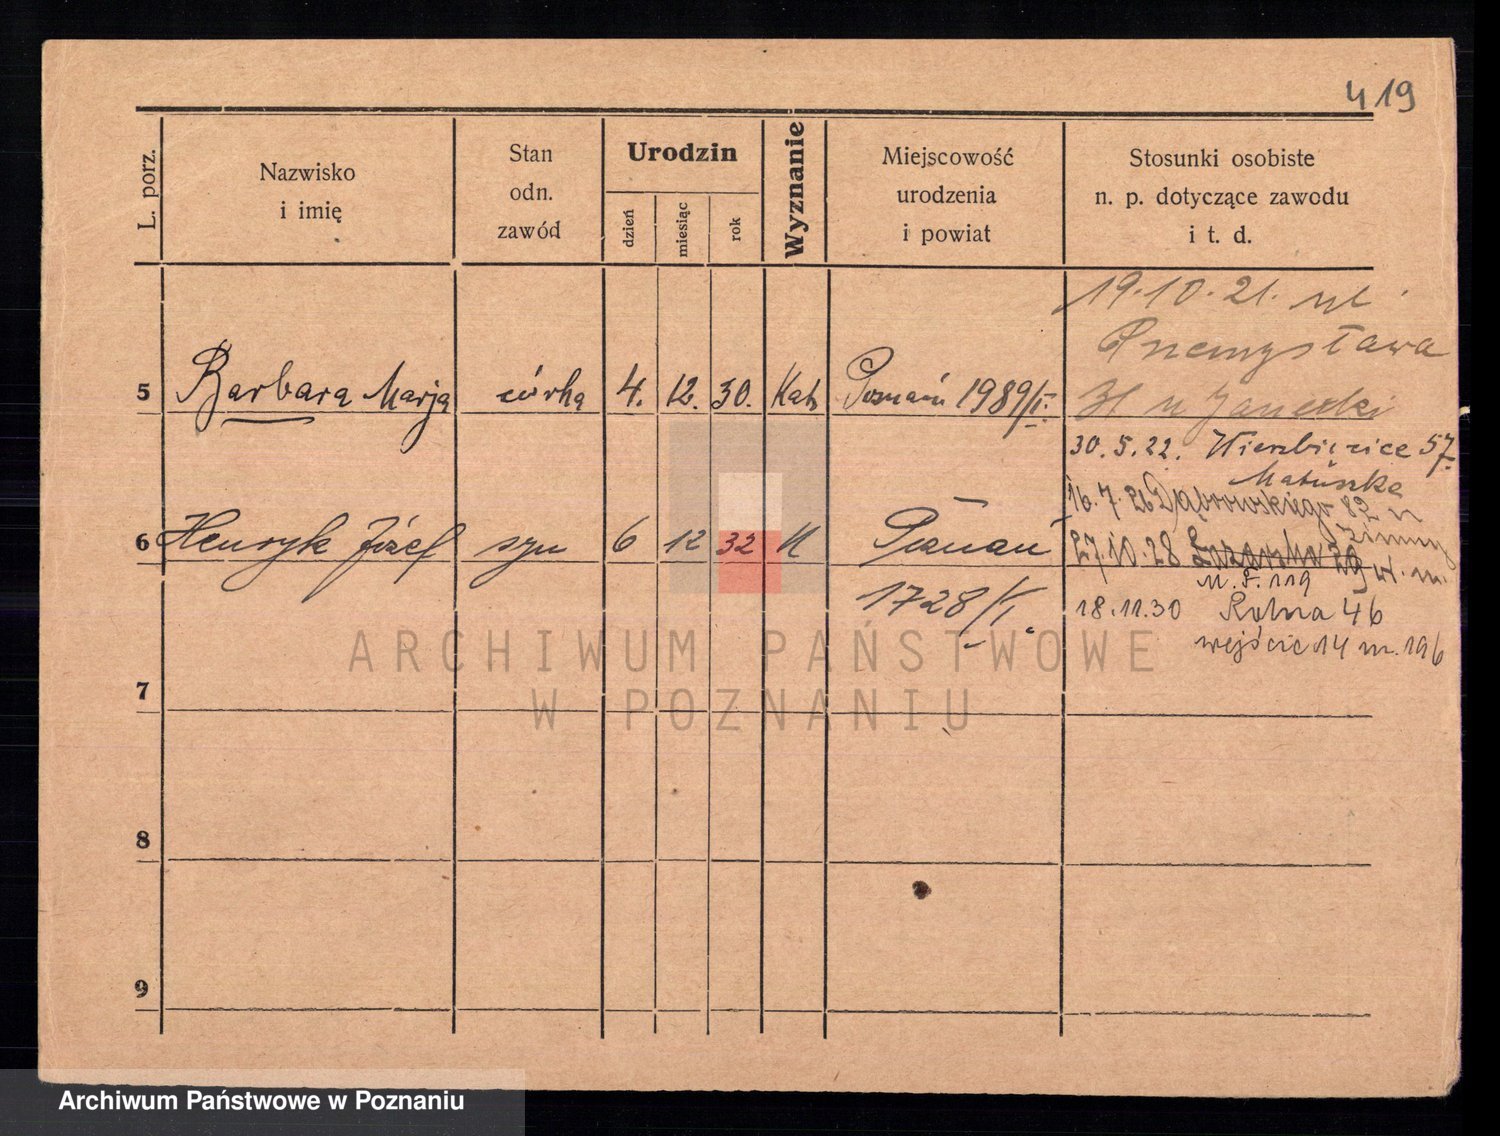 419
L. porz.
Nazwisko
i imię
Stan
odn.
zawód
Urodzin
dzień
miesiąc
rok
Wyznanie
Miejscowość
urodzenia
i powiat
Stosunki osobiste
n. p. dotyczące zawodu
i t. d.
19.10.21. ul.
Przemysława
5 Barbara Marja córka 4. 12. 30. Kat. Poznań 1989/I.
30.5.22. Wierzbięcice 57.
Matuszka
16.7.26 Dąbrowskiego 82 u
6 Henryk Józef syn 6 12 32 K Poznań
27.10.28 29
1728/I.
18.11.30 Rolna 46
wejście 14 m. 196
7
8
9
ARCHIWUM PAŃSTWOWE
W POZNANIU
Archiwum Państwowe w Poznaniu